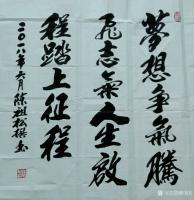 夢想争氣騰
飛志氣人生啟
程踏上征程
二〇一八年六月陈祖松撰书